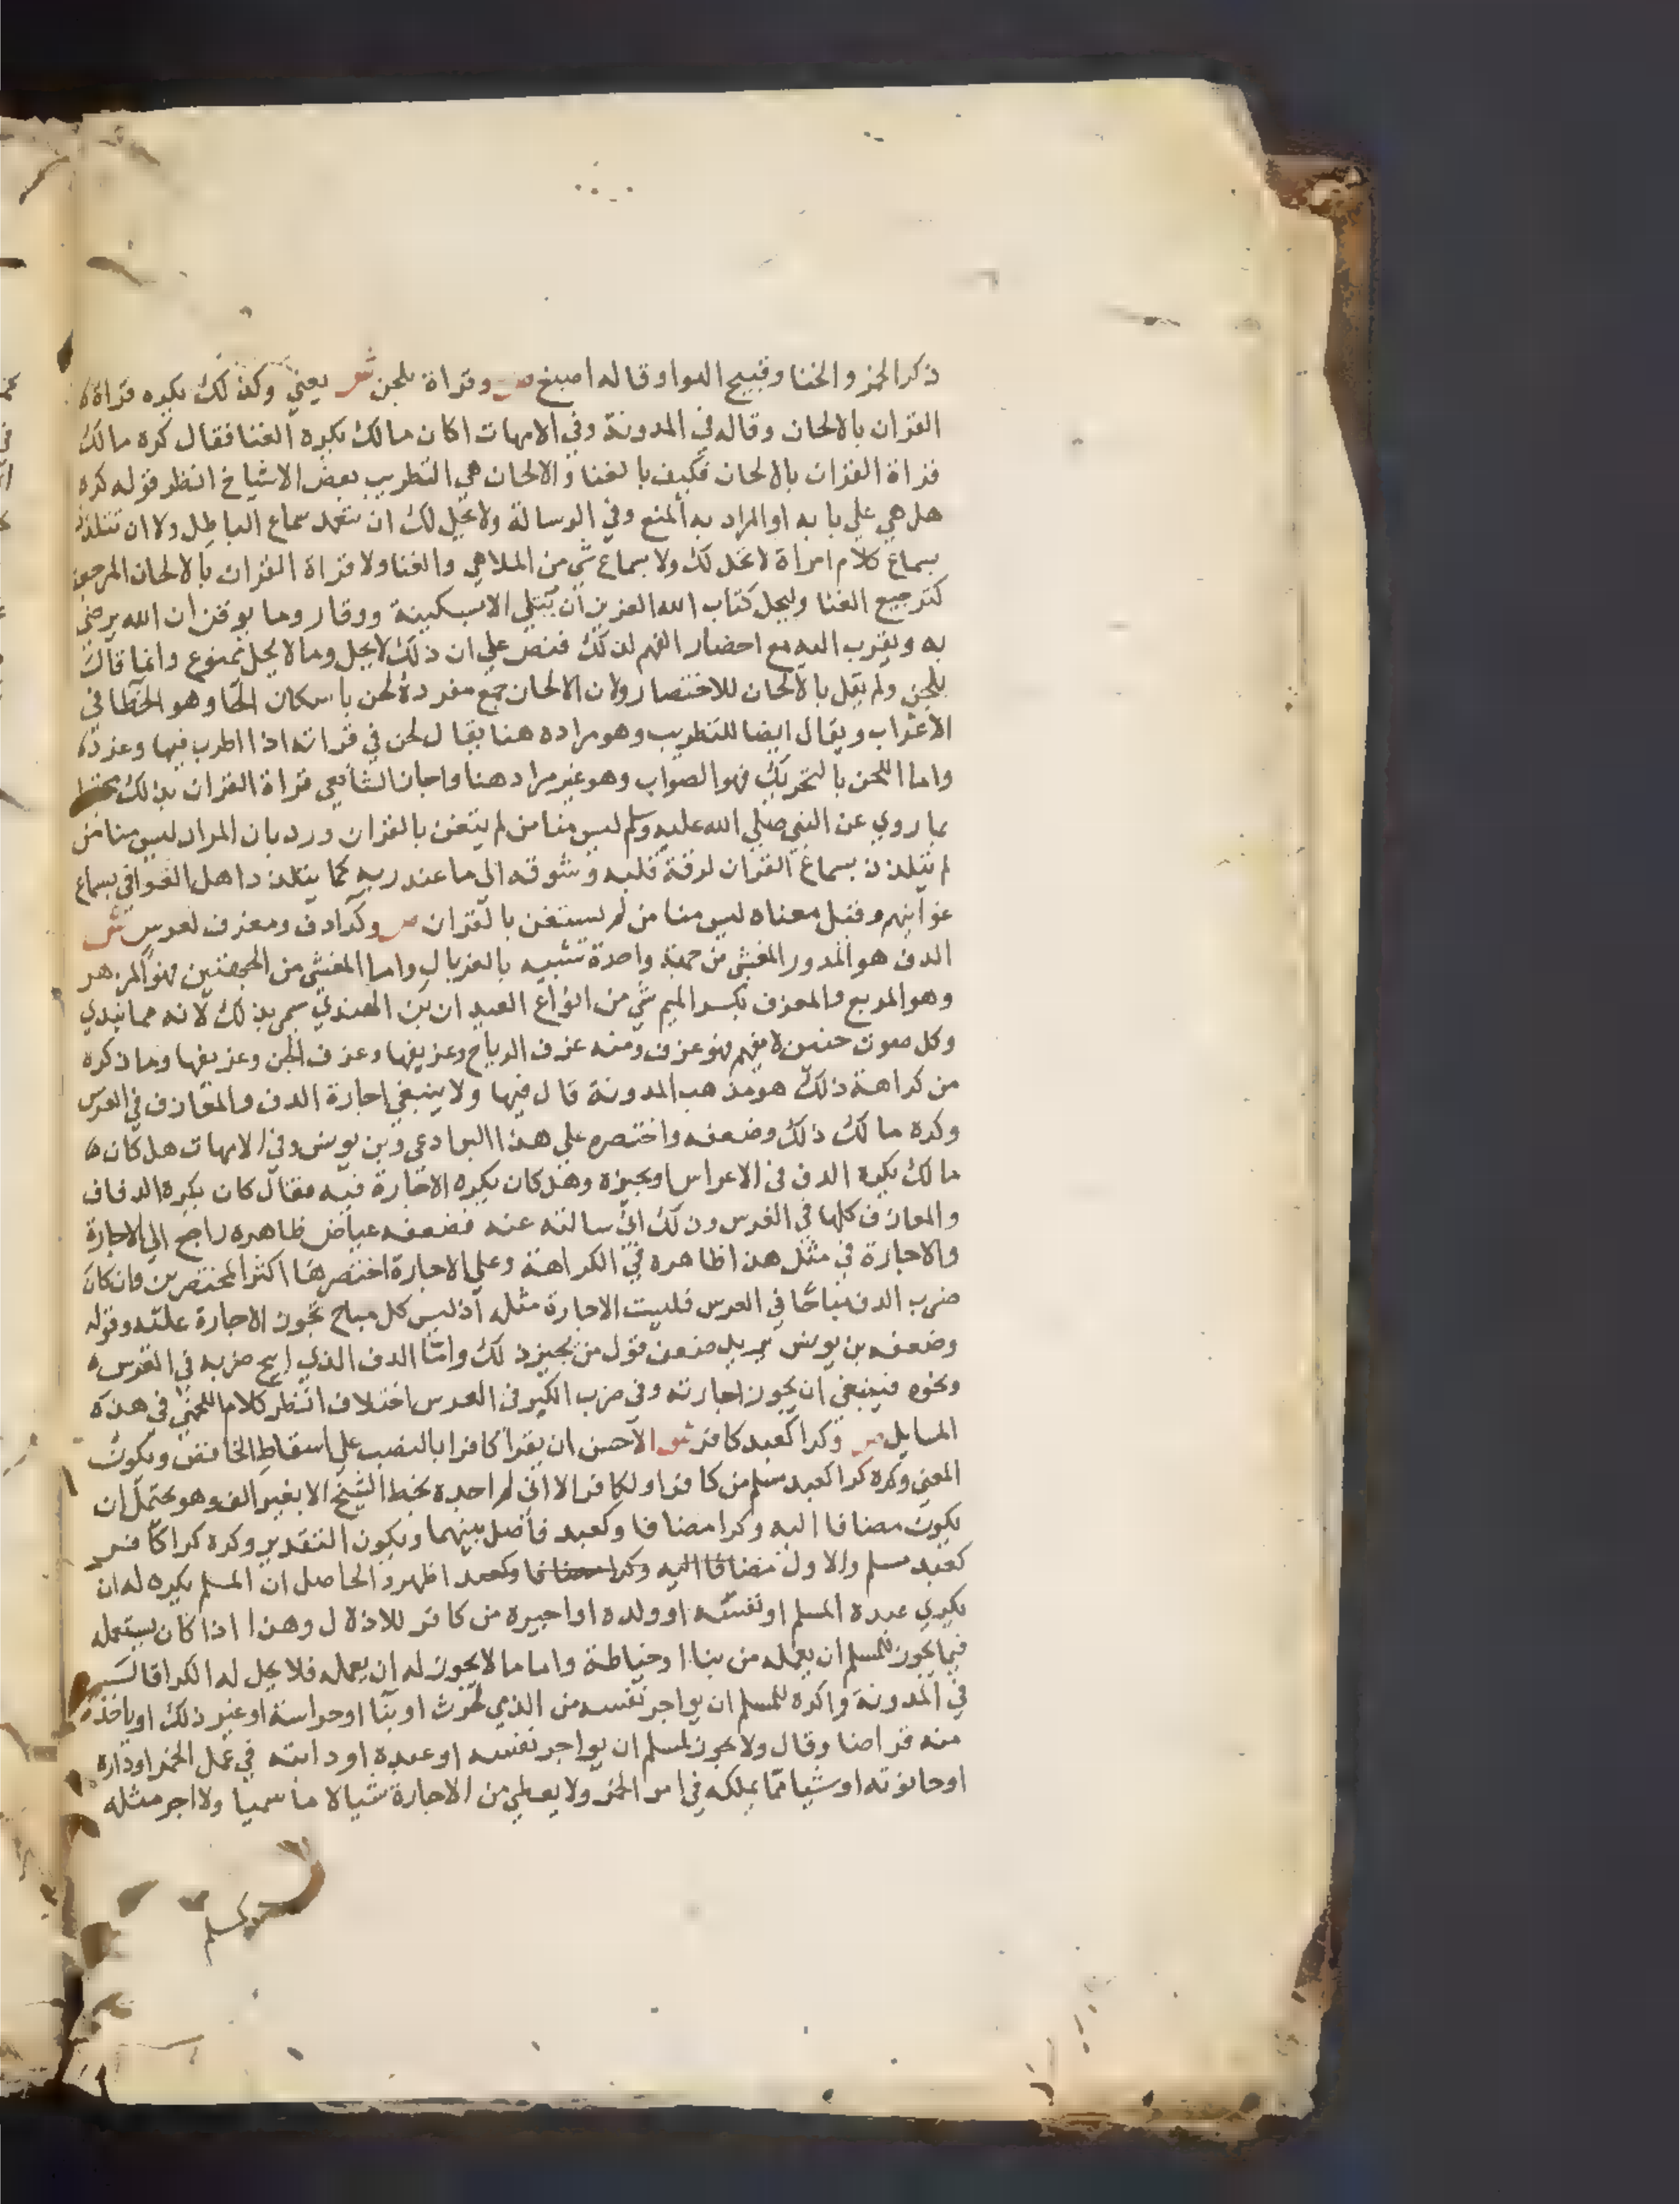 ذكر الخمر والخنا وقبيح الهوا وقاله اصبغ ص وقراة بلحن ش يعني وكذلك يكره قراة
القران بالالحان وقاله في المدونة وفي الامهات اكان مالك يكره الغنا فقال كره مالك
قراة القران بالالحان فكيف بالغنا والالحان هي التطريب بعض الاشياخ انظر قوله كره
هل هي علي بابه او المراد به المنع وفي الرسالة ولا يحل لك ان تتعمد سماع الباطل ولا ان تتلذذ
بسماع كلام امراة لا تحل لك ولا سماع شي من الملاهي والغنا ولا قراة القران بالالحان المرجعة
كترجيع الغنا وليجل كتاب الله العزيز ان يتلي الا بسكينة ووقار وما يوقن ان الله يرضي
به ويقرب اليه مع احضار الفهم لذلك فنص علي ان ذلك لا يحل وما لا يحل ممنوع وانما قال
بلحن ولم يقل بالالحان للاختصار ولان الالحان جمع مفرده لحن باسكان الحا وهو الخطا في
الاعراب ويقال ايضا للتطريب وهو مراده هنا يقال لحن في قراته اذا اطرب فيها وغرد
واما اللحن بالتحريك فهو الصواب وهو غير مراد هنا واجاز الشافعي قراة القران بذلك
بما روي عن النبي صلي الله عليه وسلم ليس منا من لم يتغن بالقران ورد بان المراد ليس منا من
لم يتلذذ بسماع القران لرقة قلبه وشوقه الي ما عند ربه كما يتلذذ اهل الغواني بسماع
غوانيهم وقيل معناه ليس منا من لم يستغن بالقران ص وكرا دف ومعزف لعرس ش
الدف هو المدور المغشي من جهة واحدة شبيه بالغربال واما المغشي من الجهتين فهو المزهر
وهو المربع والمعزف بكسر الميم شي من انواع العيدان بن الهندي سمي بذلك لانه مما تبدي
وكل صوت حنين لا يفهم فهو عزف ومنه عزف الرياح وعزيفها وعزف الجن وعزيفها وما ذكره
من كراهة ذلك هو مذهب المدونة قال فيها ولا ينبغي اجارة الدف والمعازف في العرس
وكره مالك ذلك وضعفه واختصره علي هذا البرادعي وبن يونس وفي الامهات هل كان
مالك يكره الدف في الاعراس او يجيزه وهل كان يكره الاجارة فيه فقال كان يكره الدفاف
والمعازف كلها في العرس وذلك اني سالته عنه فضعفه عياض ظاهره راجع الي الاجارة
والاجارة في مثل هذا ظاهره في الكراهة وعلي الاجارة اختصرها اكثر المختصرين وان كان
ضرب الدف مباحا في العرس فليست الاجارة مثله اذ ليس كل مباح تجوز الاجارة عليه وقوله
وضعفه بن يونس يريد ضعف قول من يجيز ذلك واما الدف الذي ابيح ضربه في العرس
ونحوه فينبغي ان يجوز اجارته وفي ضرب الكبر في العرس اختلاف انظر كلام اللخمي في هذه
المسايل ص وكرا كعبد كافر ش الاحسن ان يقرا كافرا بالنصب علي اسقاط الخافض ويكون
المعني وكره كرا كعبد مسلم من كافر او لكافر الا اني لم اجده بخط الشيخ الا بغير الف وهو يحتمل ان
يكون مضافا اليه وكرا مضافا وكعبد فاصل بينهما ويكون التقدير وكره كرا كافر
كعبد مسلم والاول مضافا اليه وكرا مضافا وكعبد اظهر والحاصل ان المسلم يكره له ان
يكري عبده المسلم او نفسه او ولده او اجيره من كافر للاذلال وهذا اذا كان يستعمله
فيما يجوز للمسلم ان يعمله من بنا او خياطة واما ما لا يجوز له ان يعمله فلا يحل له الكرا قال
في المدونة واكره للمسلم ان يواجر نفسه من الذمي لحرث او بنا او حراسة او غير ذلك او ياخذ
منه قراضا وقال ولا يجوز لمسلم ان يواجر نفسه او عبده او دابته في عمل الخمر او داره
او حانوته او شيا مما يملكه في امر الخمر ولا يعطي من الاجارة شيا لا ما سميا ولا اجر مثله